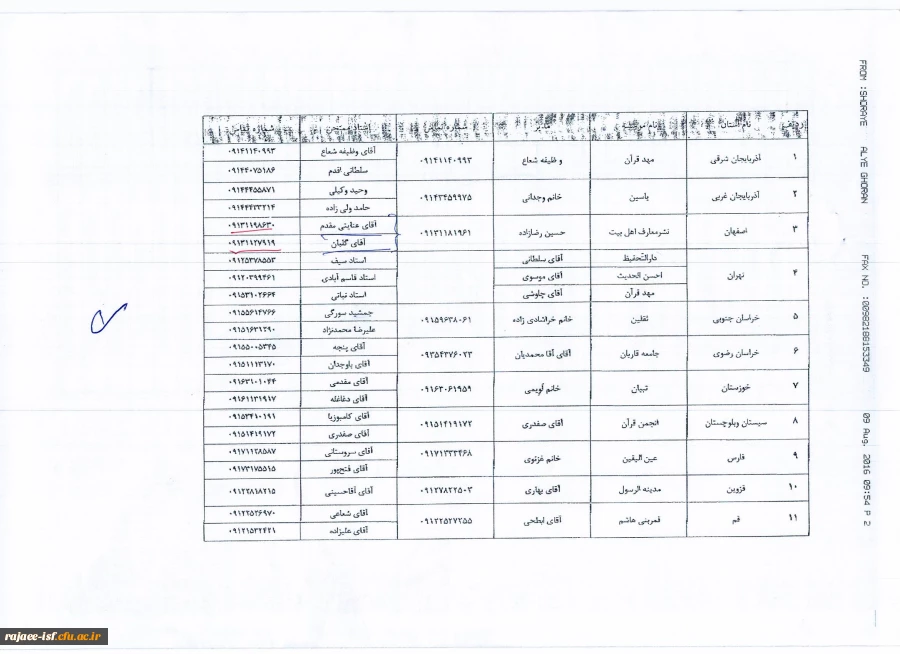 FROM :SHORAYE ALYE GHORAN FAX NO. :00982188153349 09 Aug. 2016 09:54 P 2
ردیف نام استان نام موسسه مدیر شماره تماس استاد ممتحن شماره تماس
۱ آذربایجان شرقی مهد قرآن وظیفه شعاع ۰۹۱۴۱۱۴۰۹۹۳ آقای وظیفه شعاع ۰۹۱۴۱۱۴۰۹۹۳
سلطانی اقدم ۰۹۱۴۴۰۷۵۱۸۶
۲ آذربایجان غربی یاسین خانم وجدانی ۰۹۱۴۳۴۵۹۹۷۵ وحید وکیلی ۰۹۱۴۴۴۵۵۸۷۱
حامد ولی زاده ۰۹۱۴۴۴۳۳۲۱۴
۳ اصفهان نشرمعارف اهل بیت حسین رضازاده ۰۹۱۳۱۱۸۱۹۶۱ آقای عنایتی مقدم ۰۹۱۳۱۱۹۸۶۳۰
آقای گلبان ۰۹۱۳۱۱۲۷۹۱۹
۴ تهران دارالتحفیظ آقای سلطانی استاد سیف ۰۹۱۲۵۳۷۸۵۵۳
احسن الحدیث آقای موسوی استاد قاسم آبادی ۰۹۱۲۰۳۹۹۴۶۱
مهد قرآن آقای چاوشی استاد نباتی ۰۹۱۵۳۱۰۲۶۶۴
۵ خراسان جنوبی ثقلین خانم خراشادی زاده ۰۹۱۵۹۶۳۸۰۶۱ جمشید سورگی ۰۹۱۵۵۶۱۴۷۶۶
علیرضا محمدنژاد ۰۹۱۵۱۶۳۱۲۹۰
۶ خراسان رضوی جامعه قاریان آقای آقا محمدیان ۰۹۳۵۴۳۷۶۰۲۳ آقای پنجه ۰۹۱۵۵۰۰۵۳۴۵
آقای باوجدان ۰۹۱۵۱۱۱۳۱۷۰
۷ خوزستان تبیان خانم لویمی ۰۹۱۶۳۰۶۱۹۵۹ آقای مقدمی ۰۹۱۶۳۱۰۱۰۴۴
آقای دغاغله ۰۹۱۶۱۱۳۱۹۱۷
۸ سیستان وبلوچستان انجمن قرآن آقای صفدری ۰۹۱۵۱۴۱۹۱۷۲ آقای کامبوزیا ۰۹۱۵۳۴۱۰۱۹۱
آقای صفدری ۰۹۱۵۱۴۱۹۱۷۲
۹ فارس عین الیقین خانم غزنوی ۰۹۱۷۱۳۳۳۴۶۸ آقای سروستانی ۰۹۱۷۱۱۲۸۵۸۷
آقای فتح‌پور ۰۹۱۷۳۱۷۵۵۱۵
۱۰ قزوین مدینه الرسول آقای بهاری ۰۹۱۲۷۸۲۲۵۰۳ آقای آقاحسینی ۰۹۱۲۲۸۱۸۲۱۵
۱۱ قم قمربنی هاشم آقای ابطحی ۰۹۱۲۲۵۲۷۲۵۵ آقای شعاعی ۰۹۱۲۲۵۲۶۹۷۰
آقای علیزاده ۰۹۱۲۱۵۳۲۴۲۱
rajaee-isf.cfu.ac.ir